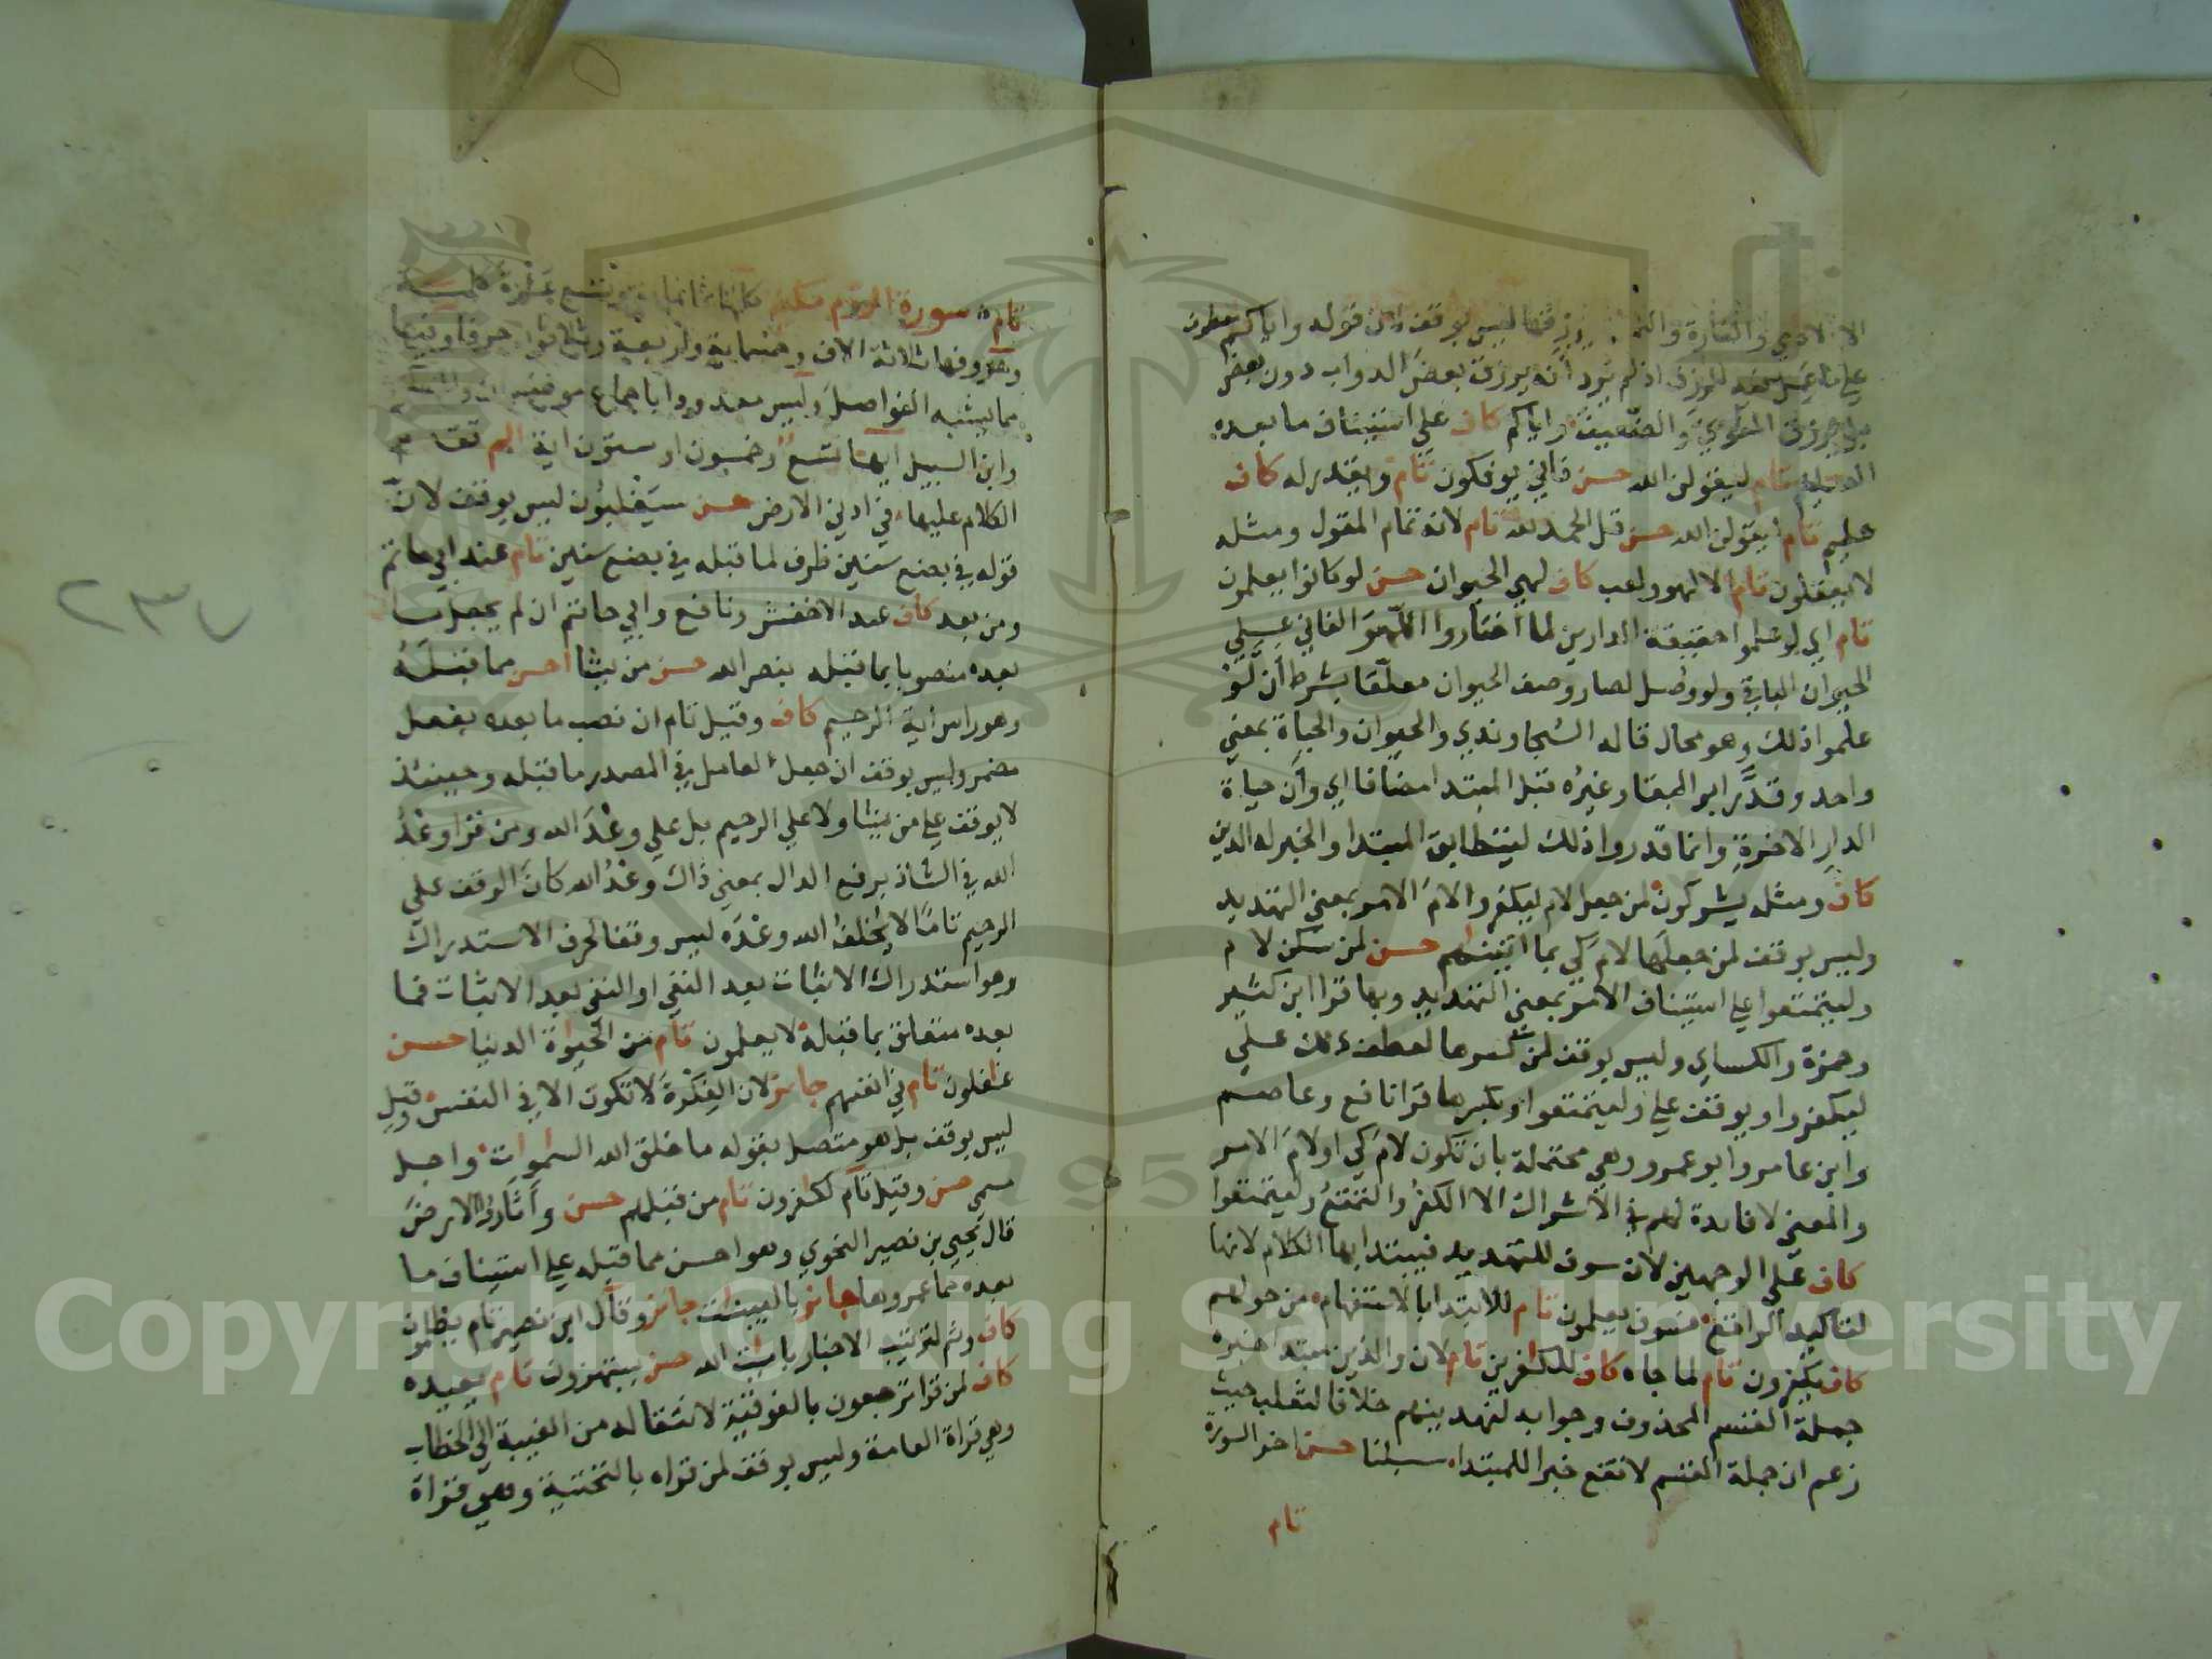 الا الادمي والفارة والنمل رزقها ليس بوقف لان قوله واياكم عطف
على ما عمل فيه الرزق اذ لم يرد أنه يرزق بعضَ الدواب دون بعض
القوي والضعيف واياكم كاف على استيناف ما بعده
العليم تام ليقولن الله حسن فاني يوفكون تام ويقدر له كاف
عليم تام ليقولن الله حسن قل الحمد لله تام لانه تمام المقول ومثله
لا يعقلون تام الا لهو ولعب كاف لهي الحيوان حسن لو كانوا يعلمون
تام اي لو علموا حقيقة الدارين لما اختاروا اللّهوَ الفاني على
الحيوان الباقي ولو وصل لصار وصف الحيوان معلّقا بشرط أن لَّوْ
علموا ذلك وهو محال قاله السّجاوندي والحيوان والحياة بمعني
واحد وقدَّر ابو البقا وغيرُه قبل المبتدا مضافا اي وأن حياة
الدارِ الاخرةِ وانما قدروا ذلك ليتطابق المبتدا والخبر له الدين
كاف ومثله يشركون لمن جعل لام ليكفروا لامَ الامر بمعني التهديد
وليس بوقف لمن جعلَها لامَ كي بما اتينهم حسن لمن سكن لام
وليتمتعوا على استيناف الامر بمعني التهديد وبها قرا ابن كثير
وحمزة والكساي وليس بوقف لمن كسرها لعطفه على
ليكفروا ويوقف على وليتمتعوا وبكسرها قرا نافع وعاصم
وابن عامر وابو عمرو وهي محتملة بان تكون لامَ كي او لامَ الامر
والمعني لا فايدة لهم في الاشراك الا الكفرُ والتمتعُ وليتمتعوا
كاف على الوجهين لان سوف للتهديد فيبتدا بها الكلام لانها
لتاكيد الواقع فسوف يعلمون تام للابتدا بالاستفهام من حولهم
كاف يكفرون تام لما جاه كاف للكفرين تام لان والذين مبتدا خبره
جملة القسم المحذوف وجوابه لنهدينهم خلافا لثعلب حيث
زعم ان جملة القسم لا تقع خبرا للمبتدا سبلنا حسن اخر السورة
تام
تام سورة الروم مكية كلمها ثمانمائة وتسع عشرة كلمة
وحروفها ثلاثة الاف وخمسماية واربعة وثلاثون حرفا وفيها
مما يشبه الفواصل وليس معدودا باجماع موضع
وابن السبيل ايها تسع وخمسون او ستون اية الم تقدم
الكلام عليها في ادني الارض حسن سيَغلبُون ليس بوقف لانّ
قوله في بضع سنين ظرف لما قبله في بضع سنين تام عند ابي حاتم
ومن بعد كاف عند الاخفش ونافع وابي حاتم ان لم يجعل ما
بعده منصوبا بما قبله بنصر الله حسن من يشا احسن مما قبله
وهو راس اية الرحيم كاف وقيل تام ان نصب ما بعده بفعل
مضمر وليس بوقف ان جعل العامل في المصدر ما قبله وحينئذ
لا يوقف على من يشا ولا على الرحيم بل على وعْدَ الله ومن قرا وعْدُ
الله في الشاذ برفع الدال بمعني ذاك وعْدُ الله كان الوقف على
الرحيم تامًا لا يُخلفُ الله وعْدَه ليس وقفا لحرف الاستدراك
وهو استدراك الاثبات بعد النفي او النفي بعد الاثبات فما
بعده متعلق بما قبله لا يعلمون تام من الحيوة الدنيا حسن
غافلون تام في انفسهم جائز لان الفِكْرةَ لا تكون الا في النفس وقيل
ليس بوقف بل هو متصل بقوله ما خلق الله السموات واجل
مسمي حسن وقيل تام لكفرون تام من قبلهم حسن وأثَاروا الارضَ
قال يحيى بن نصير النحوي وهو احسن مما قبله على استيناف ما
بعده مما عمروها جائز بالبينات جائز وقال ابن نصير تام يظلمون
كاف وثم لترتيب الاخبار بايت الله حسن يستهزون تام يعيده
كاف لمن قرا ترجعون بالفوقية لانتقاله من الغيبة الي الخطاب
وهي قراة العامة وليس بوقف لمن قراه بالتحتية وهي قراة
٢٣٧
Copyright © King Saud University
1957